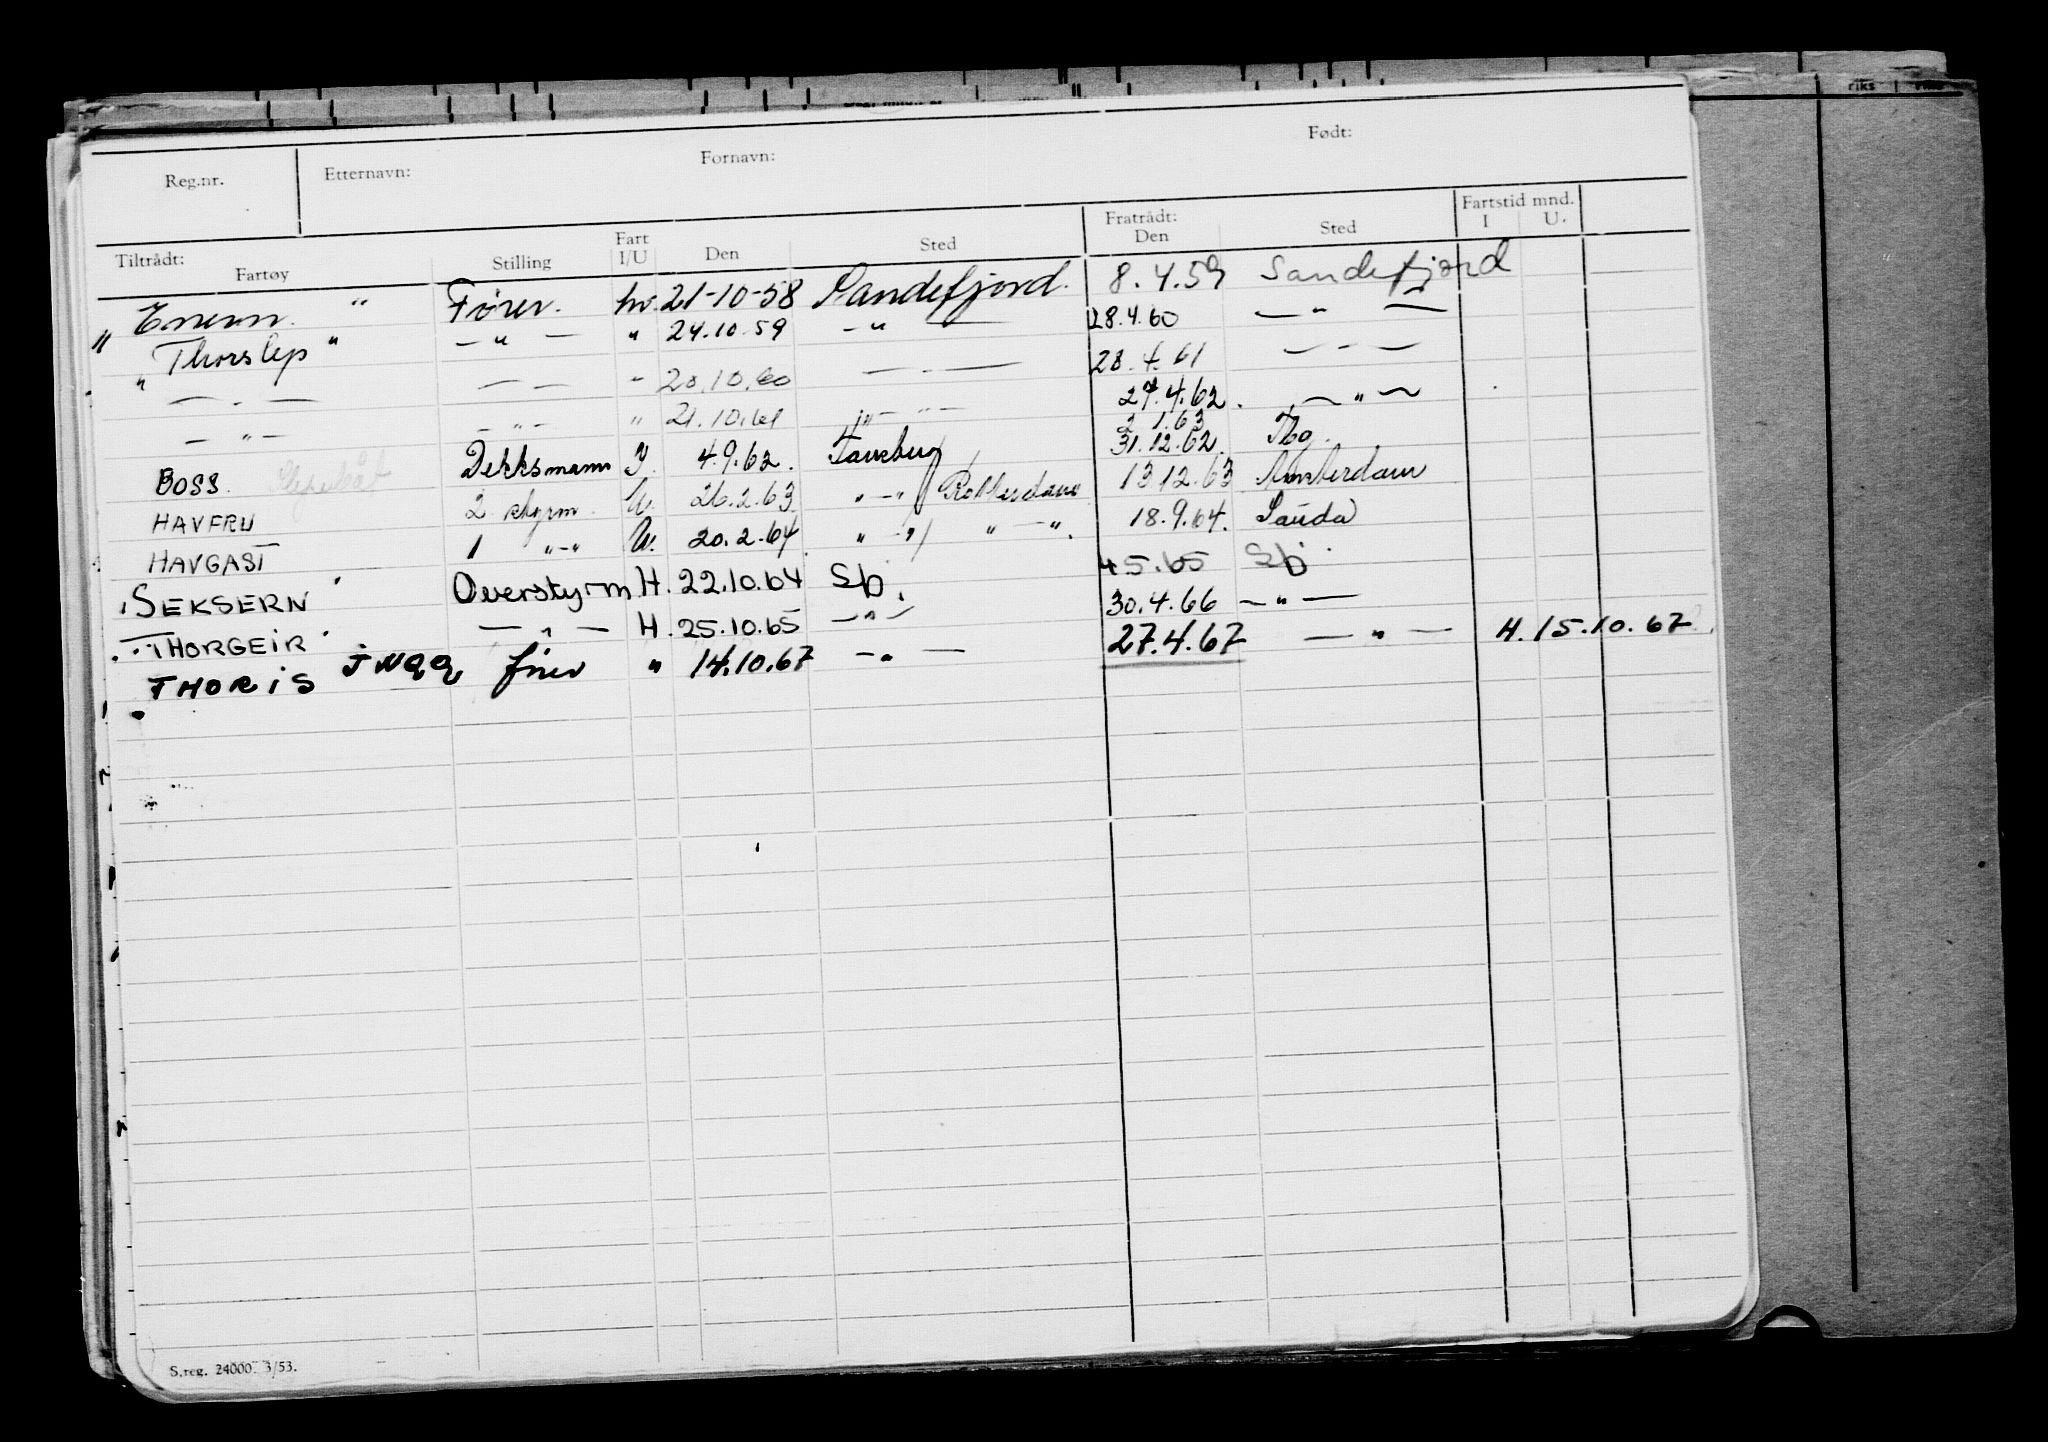 Reg.nr. Etternavn: Fornavn: Født:
Tiltrådt: Fartøy Stilling Fart I/U Den Sted Fratrådt: Den Sted Fartstid mnd. I U.
" Enern. " Fører. hv. 21-10-58 Sandefjord. 8.4.59 Sandefjord
" Thorslep " — " — " 24.10.59 — " — 28.4.60 — " —
— " — — — " 20.10.60 — " — 28.4.61 — " —
— " — — " — " 21.10.61 — " — 27.4.62. — " —
2.1.63
BOSS. Slepebåt Dekksmann I. 4.9.62. Tønsberg 31.12.62. Tbg.
HAVFRU 2 styrm. U. 26.2.63 " — " / Rotterdam 13.12.63 Amsterdam
HAVGAST 1 " — " U. 20.2.64. " — " / " — ". 18.9.64. Sauda
"SEKSERN" Overstyrm H. 22.10.64 Sfj. 4.5.65 Sfj.
"THORGEIR" — " — H. 25.10.65 — " — 30.4.66 — " —
"THORIS fører " 14.10.67 — " — 27.4.67 — " — H. 15.10.67
S.reg. 24000. 3/53.